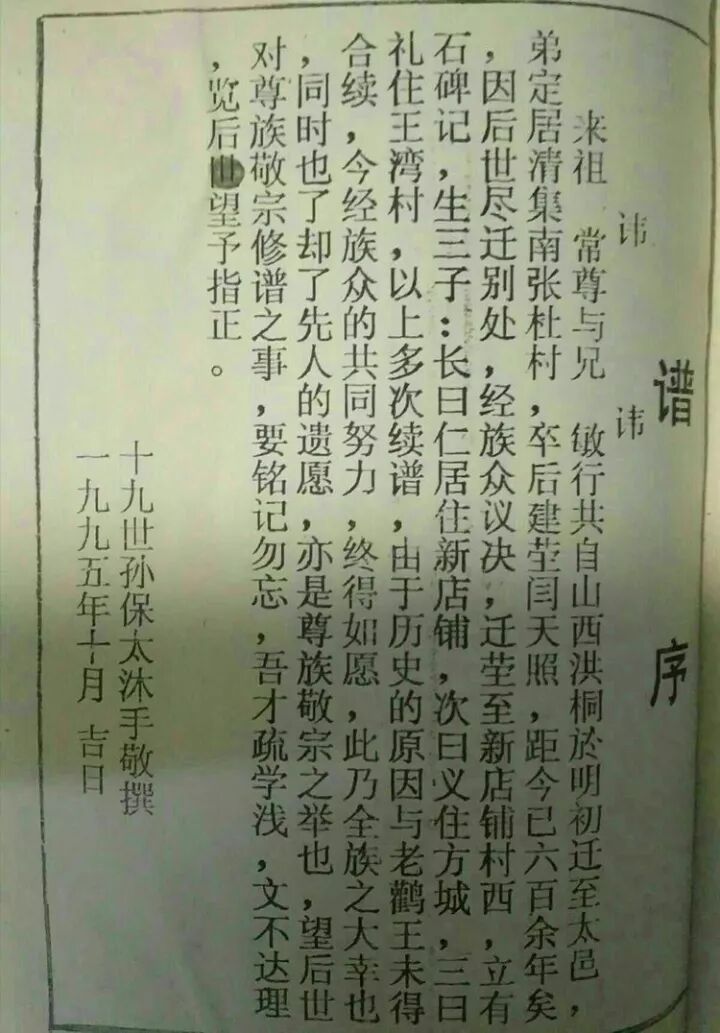 谱序
来祖讳常尊与兄讳敏行共自山西洪桐於明初迁至太邑，
弟定居清集南张杜村，卒后建茔闫天照，距今已六百余年矣
，因后世尽迁别处，经族众议决，迁茔至新店铺村西，立有
石碑记，生三子：长曰仁居住新店铺，次曰义住方城，三曰
礼住王湾村，以上多次续谱，由于历史的原因与老鹳王未得
合续，今经族众的共同努力，终得如愿，此乃全族之大幸也
，同时也了却了先人的遗愿，亦是尊族敬宗之举也，望后世
对尊族敬宗修谱之事，要铭记勿忘，吾才疏学浅，文不达理
，览后世望予指正。
十九世孙保太沐手敬撰
一九九五年十月 吉日